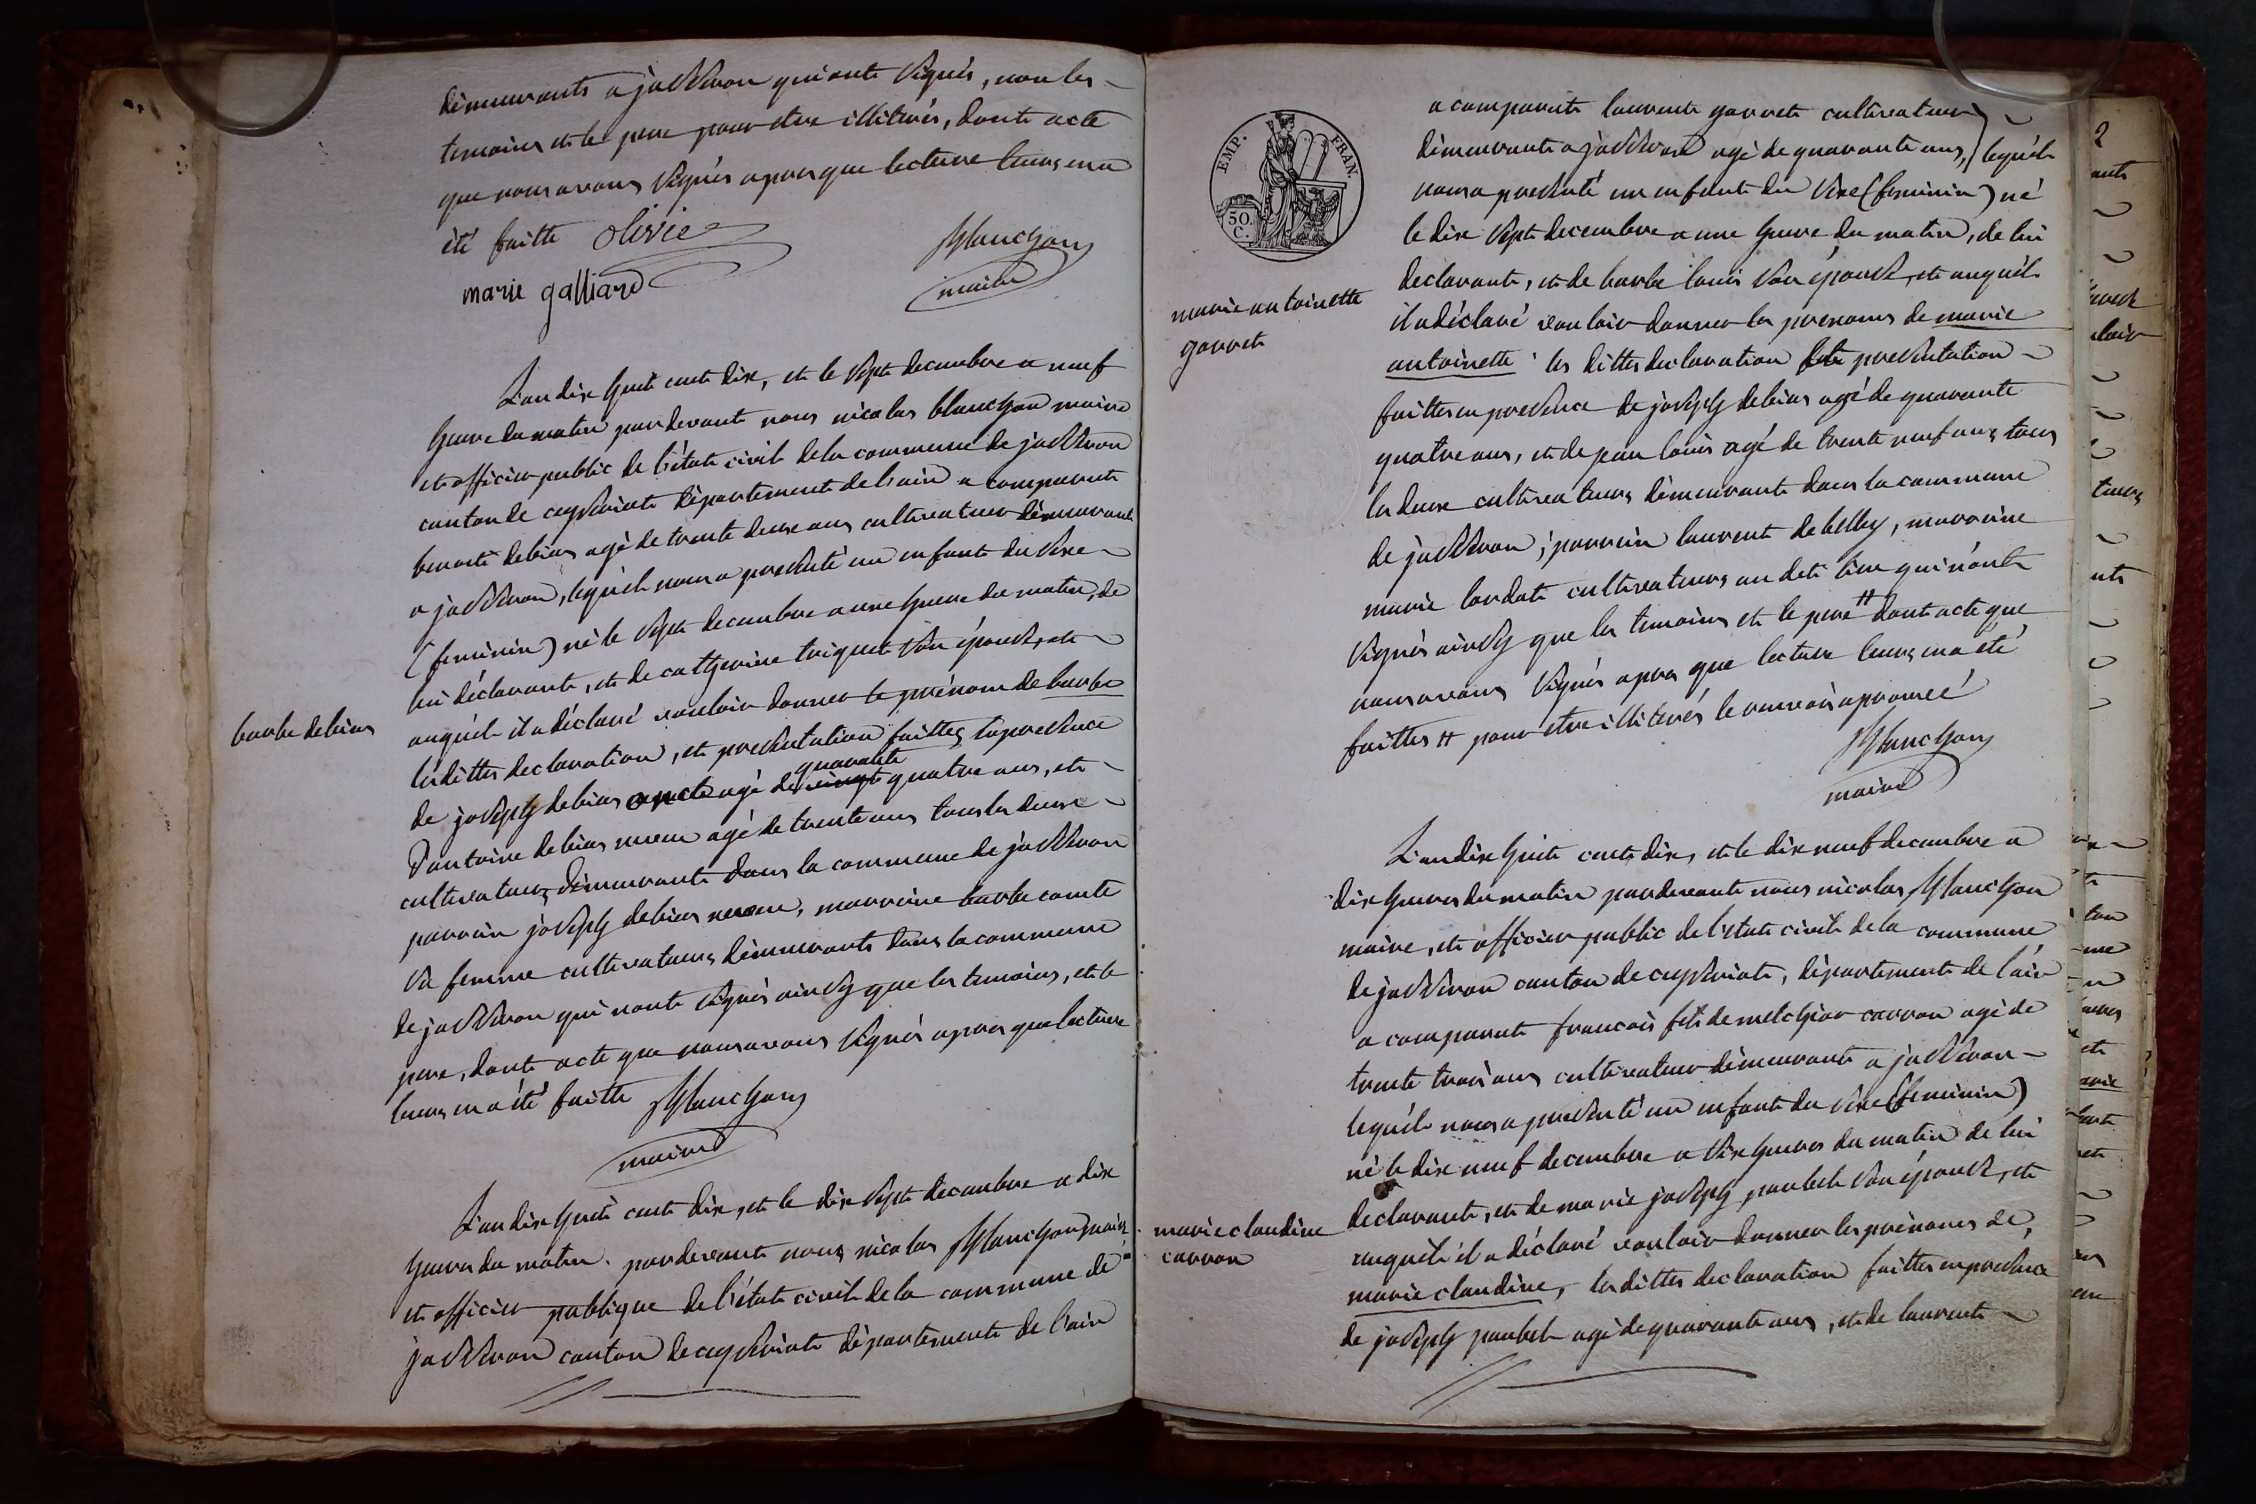 demeurants a jasseron qui ont signés, non les
temoins et le pere pour etre illiterés, dont acte
que nous avons signés apres que lecture leurs en a
été faitte olivier
blanchon
maire
marie galliard
L'an dix huit cent dix, et le sept decembre a neuf
heure du matin par devant nous nicolas blanchon maire
et officier public de l'état civil de la commune de jasseron
canton de ceyseriat département de l'ain a comparut
benoit debias agé de trente deux ans cultivateur démeurant
a jasseron, lequel nous a presenté un enfant du sexe
(feminin) né le sept decembre a une heure du matin, de
lui déclarant, et de catherine triquet son épouse, et
auquel il a déclaré vouloir donner le prénom de barbe
barbe debias
les dittes declaration, et presentation faittes en presence
de joseph debias oncle agé de vingt quarante quatre ans, et
d'antoine debias agé de trente ans tous les deux
cultivateurs démeurants dans la commune de jasseron
parrain joseph debias, marraine barbe comte
sa femme cultivateurs démeurants dans la commune
de jasseron qui n'ont signés ainsy que les temoins, et le
pere, dont acte que nous avons signés apres que lecture
leurs en a été faitte blanchon
maire
L'an dix huit cent dix, et le dix sept decembre a dix
heures du matin. par devant nous nicolas blanchon maire
et officier publique de l'état civil de la commune de
jasseron canton de ceyseriat département de l'ain
EMP. FRAN.
50.
C.
a comparut laurent garret cultivateur
démeurant a jasseron agé de quarante ans, lequel
nous a presenté un enfant du sexe (feminin) né
le dix sept decembre a une heure du matin, de lui
declarant, et de barbe louis son épouse, et auquel
marie antoinette
garret
il a déclaré vouloir donner les prenoms de marie
antoinette les dittes declaration et presentation
faittes en presence de joseph debias agé de quarante
quatre ans, et de louis agé de trente neuf ans tous
les deux cultivateurs démeurants dans la commune
de jasseron; parrain laurent debelley, marraine
marie cultivateurs au dit lieu qui n'ont
signés ainsy que les temoins et le pere # dont acte que
nous avons signés apres que lecture leurs en a été
faittes # pour etre illiterés le renvoi aprouvé
blanchon
maire
L'an dix huit cent dix, et le dix neuf decembre a
dix heures du matin par devant nous nicolas blanchon
maire, et officier public de l'état civil de la commune
de jasseron canton de ceyseriat, département de l'ain
a comparut francois fils de melchior carron agé de
trente trois ans cultivateur démeurant a jasseron
lequel nous a presenté un enfant du sexe (feminin)
né le dix neuf decembre a six heures du matin de lui
declarant, et de marie joseph paubel son épouse, et
marie claudine
carron
auquel il a déclaré vouloir donner les prénoms de,
marie claudine, les dittes declaration faittes en presence
de joseph paubel agé de quarante ans, et de laurent